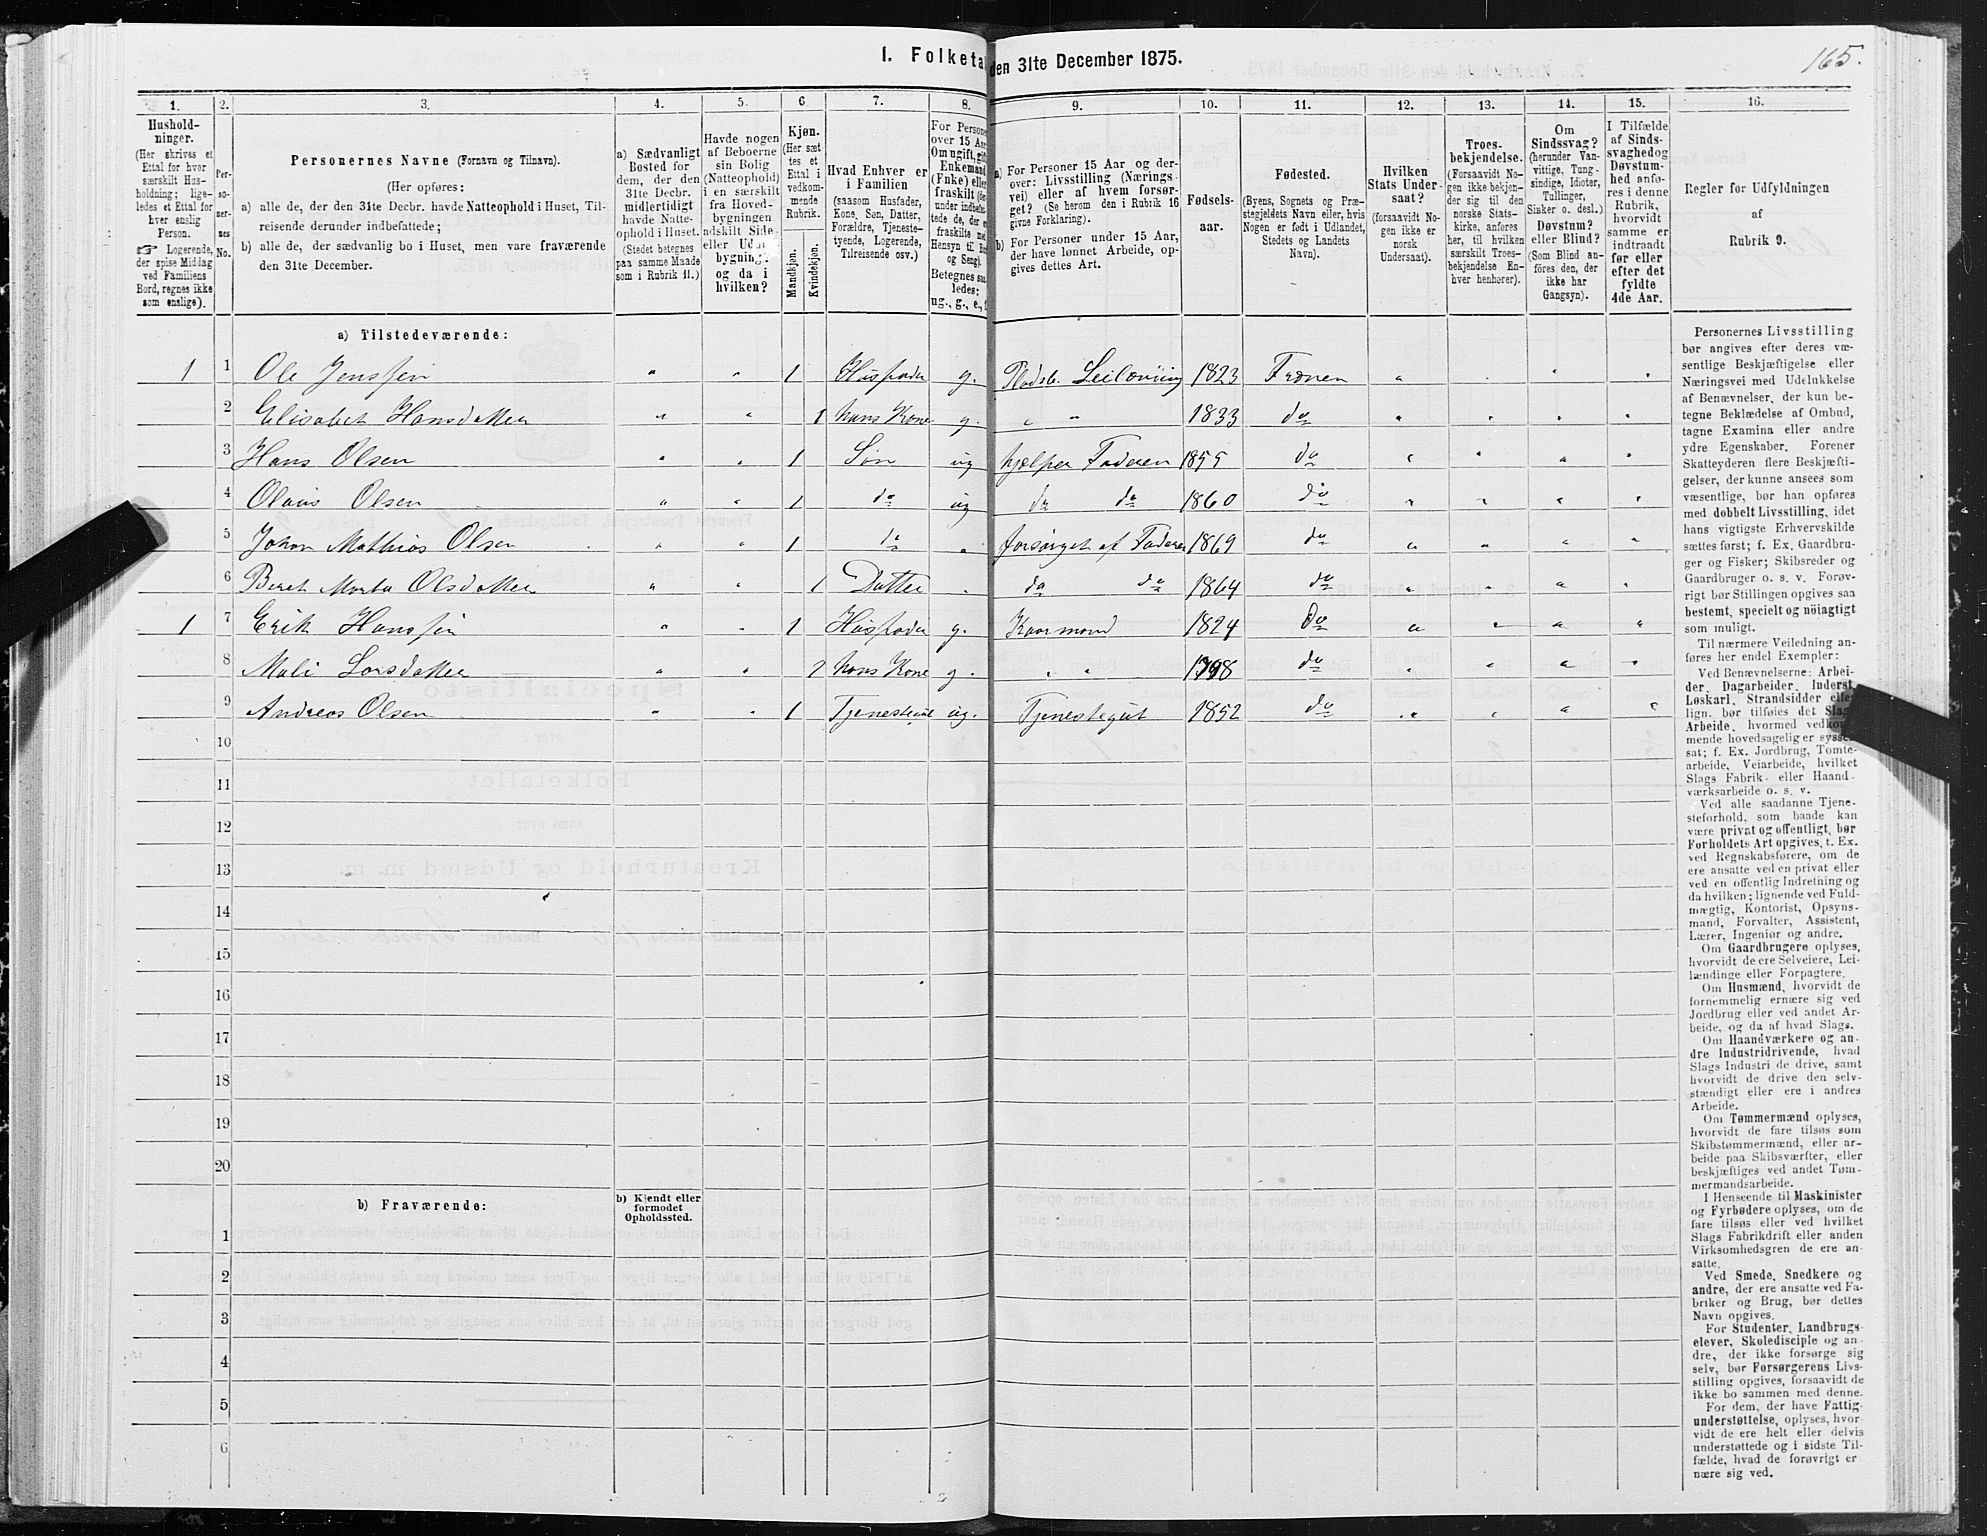 165.
1. Folketal den 31te December 1875.
1. 2. 3. 4. 5. 6. 7. 8. 9. 10. 11. 12. 13. 14. 15. 16.
Hushold-
ninger.
(Her skrives et
Ettal for hver
særskilt Hus-
holdning; lige-
ledes et Ettal for
hver enslig
Person.
☞ Logerende,
der spise Middag
ved Familiens
Bord, regnes ikke
som enslige).
Per-
so-
ner-
nes
No.
Personernes Navne (Fornavn og Tilnavn).
(Her opføres:
a) alle de, der den 31te Decbr. havde Natteophold i Huset, Til-
reisende derunder indbefattede;
b) alle de, der sædvanlig bo i Huset, men vare fraværende
den 31te December.
a) Sædvanligt
Bosted for
dem, der den
31te Decbr.
midlertidigt
havde Natte-
ophold i Huset.
(Stedet betegnes
paa samme Maade
som i Rubrik 11.)
Havde nogen
af Beboerne
sin Bolig
(Natteophold)
i en særskilt
fra Hoved-
bygningen
adskilt Side-
eller Udh-
bygning?
og da i
hvilken?
Kjøn.
(Her sæt-
tes et
Ettal i
vedkom-
mende
Rubrik.
Mandkjøn.
Kvindekjøn.
Hvad Enhver er
i Familien
(saasom Husfader,
Kone, Søn, Datter,
Forældre, Tjeneste-
tyende, Logerende,
Tilreisende osv.)
For Persone
over 15 Aa
Om ugift, gift
Enkemand
(Enke) eller
fraskilt (de
under indbefat-
tede de, der e
fraskilte med
Hensyn til Bo
og Seng).
Betegnes saa-
ledes:
ug., g., e., f
a) For Personer 15 Aar og der-
over: Livsstilling (Nærings-
vei) eller af hvem forsør-
get? (Se herom den i Rubrik 16
givne Forklaring).
b) For Personer under 15 Aar,
der have lønnet Arbeide, op-
gives dettes Art.
Fødsels-
aar.
Fødested.
(Byens, Sognets og Præ-
stegjeldets Navn eller, hvis
Nogen er født i Udlandet,
Stedets og Landets
Navn).
Hvilken
Stats Under-
saat?
(forsaavidt No-
gen ikke er
norsk
Undersaat).
Troes-
bekjendelse.
(Forsaavidt No-
gen ikke bekjen-
der sig til den
norske Stats-
kirke, anføres
her, til hvilken
særskilt Troes-
bekjendelse En-
hver henhører).
Om
Sindssvag?
(herunder Van-
vittige, Tung-
sindige, Idioter,
Tullinger,
Sinker o. desl.)
Døvstum?
eller Blind?
(Som Blind an-
føres den, der
ikke har
Gangsyn).
I Tilfælde
af Sinds-
svaghed og
Døvstum-
hed anfø-
res i denne
Rubrik,
hvorvidt
samme er
indtraadt
før eller
efter det
fyldte
4de Aar.
Regler for Udfyldningen
af
Rubrik 9.
a) Tilstedeværende:
1 1 Ole Jenssen " " 1 Husfader g. Pladsb. 1823 Frænen
2 Elisabet Hansdatter " " 1 hans Kone g. " " 1833 do
3 Hans Olsen " " 1 Søn ug hjelper Faderen 1855 do
4 Olaus Olsen " " 1 do ug do do 1860 do
5 Johan Mathias Olsen " " 1 do " forsørget af Faderen 1869 do
6 Beret Marta Olsdatter " " 1 Datter " do do 1864 do
1 7 Erik Hanssen " " 1 Husfader g. Kaarmand 1824 do
8 Mali Larsdatter " " hans Kone g. " " do
9 Andreas Olsen " " 1 ug. Tjenestegut 1852 do
10
11
12
13
14
15
16
17
18
19
20
b) Fraværende:
b) Kjendt eller
formodet
Opholdssted.
1
2
3
4
5
6
Personernes Livsstilling
bør angives efter deres væ-
sentlige Beskjæftigelse eller
Næringsvei med Udelukkelse
af Benævnelser, der kun be-
tegne Beklædelse af Ombud,
tagne Examina eller andre
ydre Egenskaber. Forener
Skatteyderen flere Beskjæfti-
gelser, der kunne ansees som
væsentlige, bør han opføres
med dobbelt Livsstilling, idet
hans vigtigste Erhvervskilde
sættes først; f. Ex. Gaardbru-
ger og Fisker; Skibsreder og
Gaardbruger o. s. v. Forøv-
rigt bør Stillingen opgives saa
bestemt, specielt og nöiagtigt
som muligt.
Til nærmere Veiledning an-
føres her endel Exempler:
Ved Benævnelserne: Arbei-
der, Dagarbeider, Inderst,
Løskarl, Strandsidder eller
lign. bør tilføies det Slags
Arbeide, hvormed vedkom-
mende hovedsagelig er syssel-
sat; f. Ex. Jordbrug, Tomte-
arbeide, Veiarbeide, hvilket
Slags Fabrik- eller Haand-
værksarbeide o. s. v.
Ved alle saadanne Tjene-
steforhold, som baade kan
være privat og offentligt, bør
Forholdets Art opgives, t. Ex.
ved Regnskabsførere, om de
ere ansatte ved en privat eller
ved en offentlig Indretning og
da hvilken; lignende ved Fuld-
mægtig, Kontorist, Opsyns-
mand, Forvalter, Assistent,
Lærer, Ingeniør og andre.
Om Gaardbrugere oplyses,
hvorvidt de ere Selveiere, Lei-
lændinge eller Forpagtere.
Om Husmænd, hvorvidt de
fornemmelig ernære sig ved
Jordbrug eller ved andet Ar-
beide, og da af hvad Slags.
Om Haandværkere og an-
dre Industridrivende, hvad
Slags Industri de drive, samt
hvorvidt de drive den selv-
stændigt eller ere i andres
Arbeide.
Om Tømmermænd oplyses,
hvorvidt de fare tilsøs som
Skibstømmermænd, eller ar-
beide paa Skibsværfter, eller
beskjæftiges ved andet Tøm-
mermandsarbeide.
I Henseende til Maskinister
og Fyrbødere oplyses, om de
fare tilsøs eller ved hvilket
Slags Fabrikdrift eller anden
Virksomhedsgren de ere an-
satte.
Ved Smede, Snedkere og
andre, der ere ansatte ved Fa-
briker og Brug, bør dettes
Navn opgives.
For Studenter, Landbrugs-
elever, Skoledisciple og an-
dre, der ikke forsørge sig
selv, bør Forsørgerens Livs-
stilling opgives, forsaavidt de
ikke bo sammen med denne.
For dem, der have Fattig-
understøttelse, oplyses, hvor-
vidt de ere helt eller delvis
understøttede og i sidste Til-
fælde, hvad de forøvrigt er
nære sig ved.